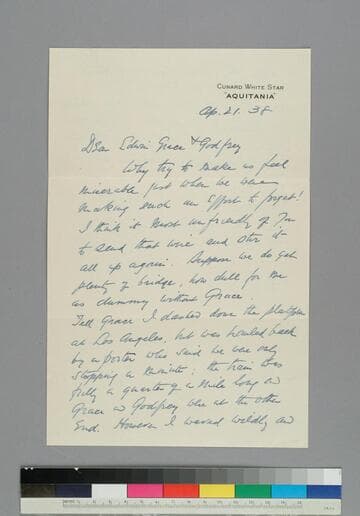 CUNARD WHITE STAR
"AQUITANIA"
Ap. 21. 38
Dear Edwin Grace & Godfrey
Why try to make us feel
miserable just when we were
making such an effort to forget!
I think it most unfriendly of you
to send that wire and stir it
all up again. Suppose we do get
plenty of bridge, how dull for me
as dummy without Grace.
Tell Grace I dashed down the platform
at Los Angeles, but was hauled back
by a porter who said we were only
stopping a minute; the train was
fully a quarter of a mile long and
Grace & Godfrey were at the other
end. However I waved wildly and